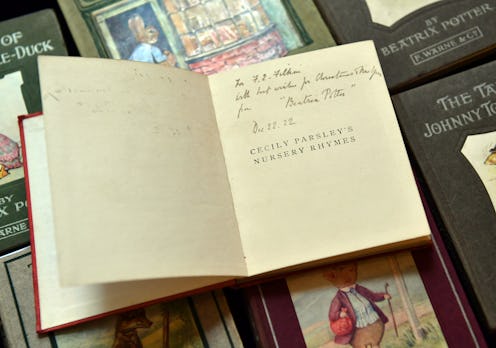 OF
LE-DUCK
BY
BEATRIX PO
WARNE &
BY
BEATRIX POTTER
F. WARNE & Co
THE TA
JOHNNY TO
For F.
with best wishes for Christmas &
from "Beatrix Potter"
Dec 22. 22
CECILY PARSLEY'S
NURSERY RHYMES